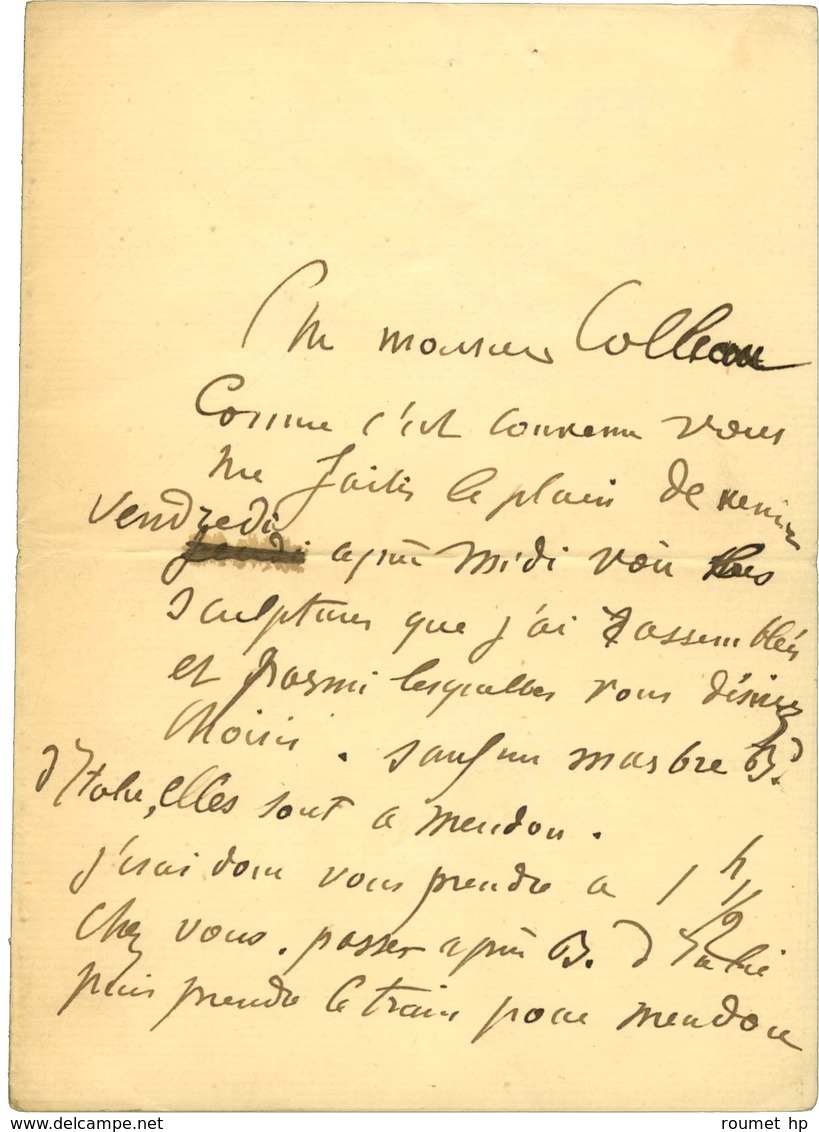 monsieur
Comme c'est convenu vous
me faites le plaisir de venir
vendredi
après midi voir les
sculptures que j'ai rassemblées
et parmi lesquelles vous désirez
choisir. sauf un marbre Bd.
d'Italie, elles sont a meudon.
j'irai donc vous prendre a 1 h 1/2
chez vous. passer après B. d Italie
puis prendre le train pour meudon
roumet hp